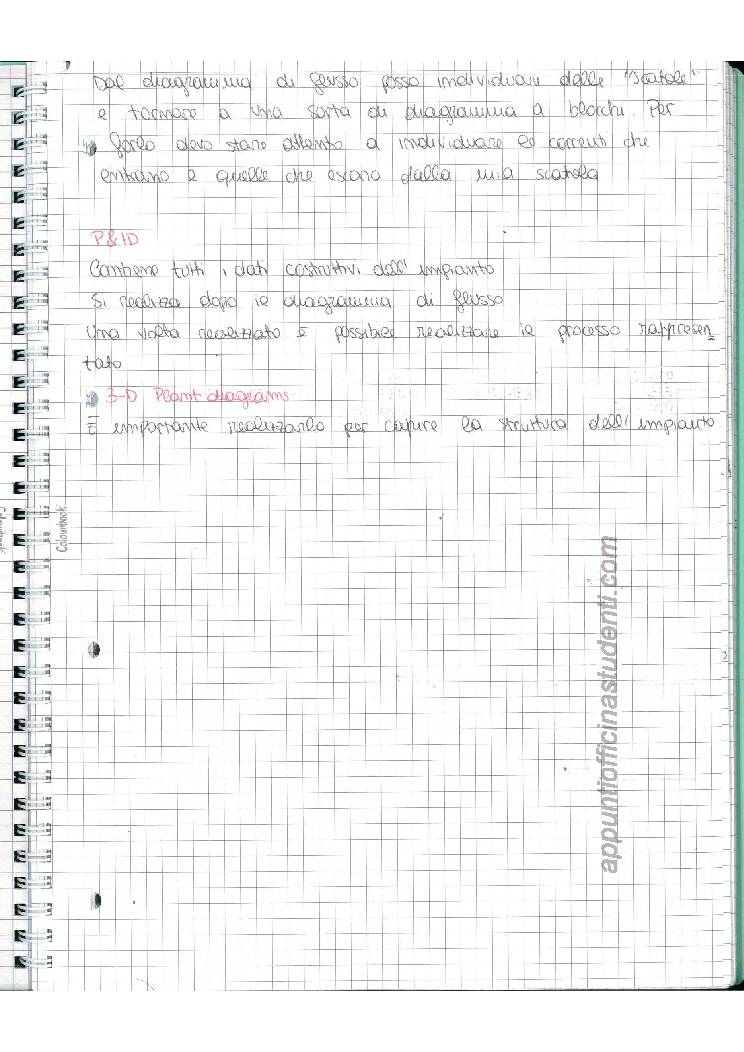 Dal diagramma di flusso posso individuare delle "scatole"
e tornare a una sorta di diagramma a blocchi. Per
farlo devo stare attento a individuare le correnti che
entrano e quelle che escono dalla mia scatola
P&ID
Contiene tutti i dati costruttivi dell'impianto
Si realizza dopo il diagramma di flusso
Una volta realizzato è possibile realizzare il processo rappresen
tato
3-D Plant diagrams
È importante realizzarlo per capire la struttura dell'impianto
Colourbook
appuntiofficinastudenti.com